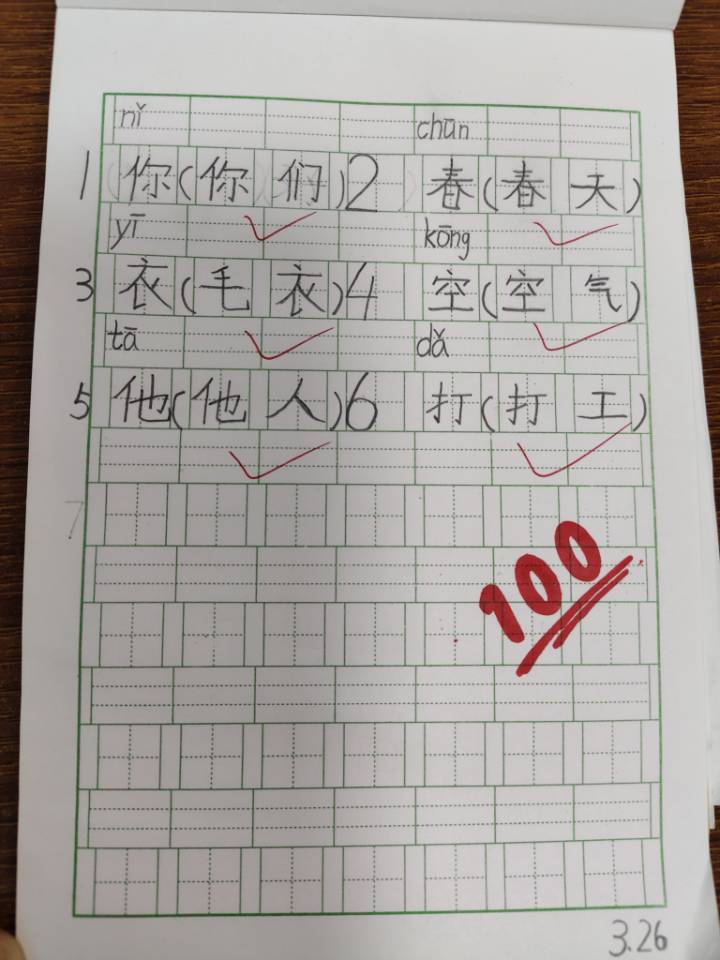 nǐ chūn
1 你(你们) 2 春(春天)
yī kōng
3 衣(毛衣) 4 空(空气)
tā dǎ
5 他(他人) 6 打(打工)
7
100
3.26